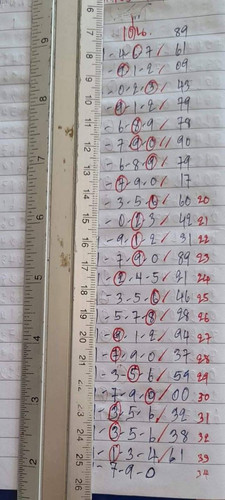 1st. 89
1-4-6-7/61
1-①-1-2/09
1-0-2-③/43
1-①-1-2/79
1-6-⑧-9/78
1-7-⑨-0/90
1-6-8-⑨/79
1-⑦-9-0/17
1-3-5-⑥/60 20
1-0-②-3/42 21
1-9-①-2/31 22
1-7-⑨-0/89 23
1-②-4-5/21 24
1-3-5-⑥/46 25
1-5-7-⑧/28 26
1-⑨-1-2/94 27
1-⑦-9-0/37 28
1-3-⑤-6/59 29
1-7-9-⓪/00 30
1-③-5-6/32 31
1-③-5-6/38 32
1-①-3-4/61 33
1-7-9-0 34
9
8
7
6
5
4
3
2
7
8
9
10
11
12
13
14
15
16
17
18
19
20
21
22
23
24
25
26